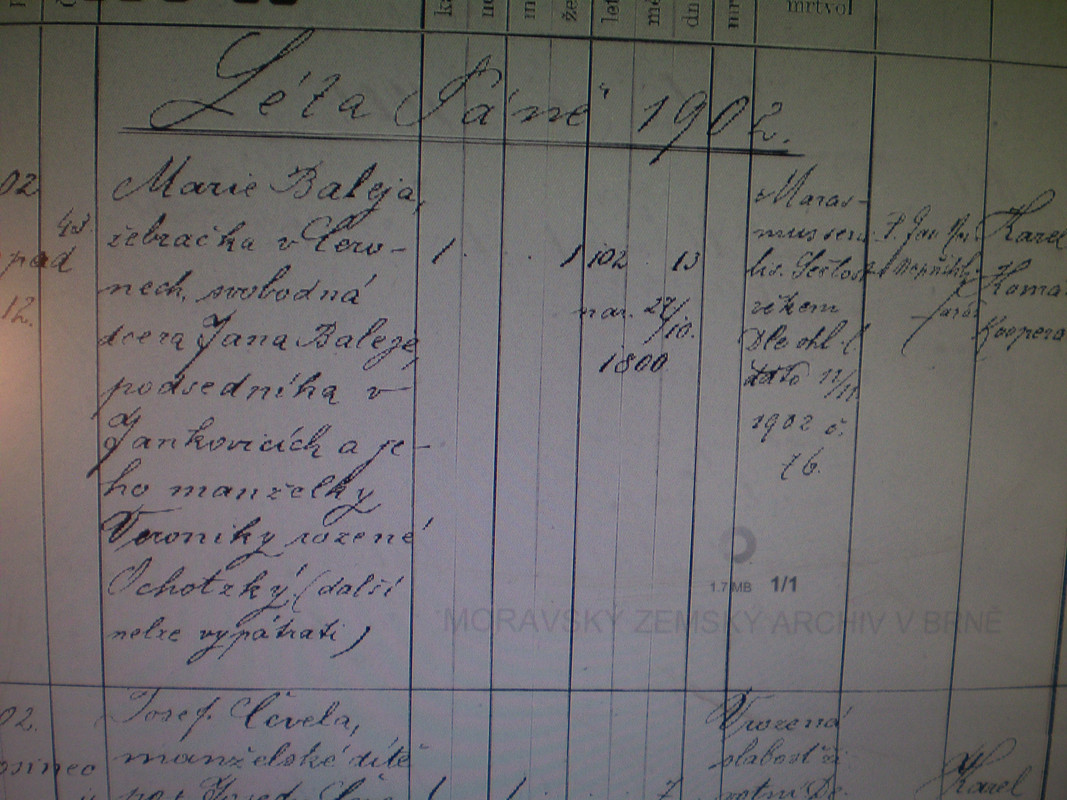 mrtvol
Léta Páně 1902.
02
Marie Baleja,
žebračka v Cero-
nech, svobodná
dcera Jana Baleje,
podsedníka v
Jankovicích a je-
ho manželky
Veroniky rozené
Ochotzký (další
nelze vypátrati)
pad
12.
1
1
102
13
nar. 27/10.
1800
Maras-
mus seni-
lis. Sešlost
věkem
Dle ohl. l.
ddto 12/11
1902 č.
76.
Karel
1.7 MB 1/1
MORAVSKÝ ZEMSKÝ ARCHIV V BRNĚ
02.
Josef Čevela,
manželské dítě
1
1
7
Vrozená
slabost ži
Karel